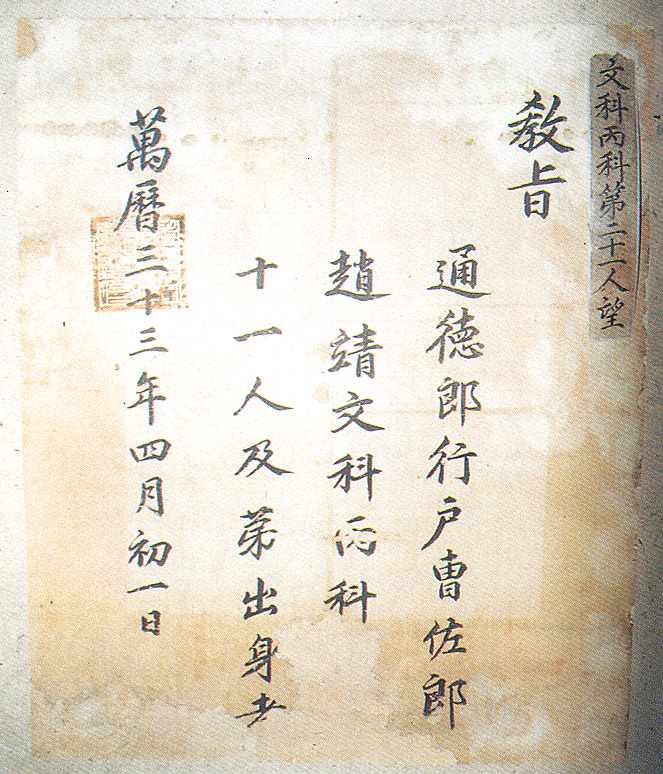 文科丙科第二十一人望
敎旨
通德郎行戶曹佐郎
趙靖文科丙科
十一人及苐出身者
萬曆三十三年四月初一日